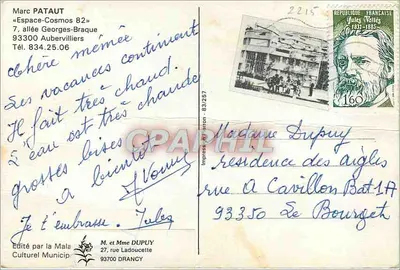 Marc PATAUT
«Espace-Cosmos 82»
7, allée Georges-Braque
93300 Aubervilliers
Tél. 834.25.06
chère mémée
Les vacances continuent
Il fait très chaud.
L'eau est très chaude
grosses bises
A bientôt
Je t'embrasse. Jules
Edité par la
Culturel Municip
M. et Mme DUPUY
27, rue Ladoucette
93700 DRANCY
83/257
2215
REPUBLIQUE FRANÇAISE
Jules Vallès
1832-1885
1,60
CARTOPHIL
Madame Dupuy
residence des aigles
rue A Cavillon Bat 1A
93350 Le Bourget